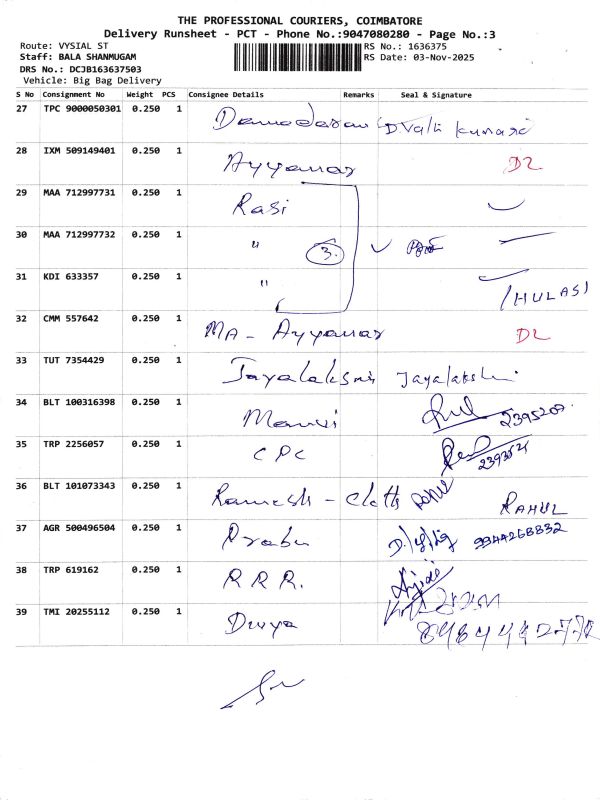 THE PROFESSIONAL COURIERS, COIMBATORE
Delivery Runsheet - PCT - Phone No.:9047080280 - Page No.:3
Route: VYSIAL ST RS No.: 1636375
Staff: BALA SHANMUGAM RS Date: 03-Nov-2025
DRS No.: DCJB163637503
Vehicle: Big Bag Delivery
S No Consignment No Weight PCS Consignee Details Remarks Seal & Signature
27 TPC 9000050301 0.250 1 Damodaran D. Valli Kumari
28 IXM 509149401 0.250 1 Ayyanar D2
29 MAA 712997731 0.250 1 Rasi
30 MAA 712997732 0.250 1 " 3.
31 KDI 633357 0.250 1 " (HULAS)
32 CMM 557642 0.250 1 MA - Ayyanar D2
33 TUT 7354429 0.250 1 Jayalaksmi Jayalakshmi
34 BLT 100316398 0.250 1
35 TRP 2256057 0.250 1 CPC
36 BLT 101073343 0.250 1 Ramesh - Cloth RAHUL
37 AGR 500496504 0.250 1 Prabu 9944268832
38 TRP 619162 0.250 1 R.R.R.
39 TMI 20255112 0.250 1 Divya